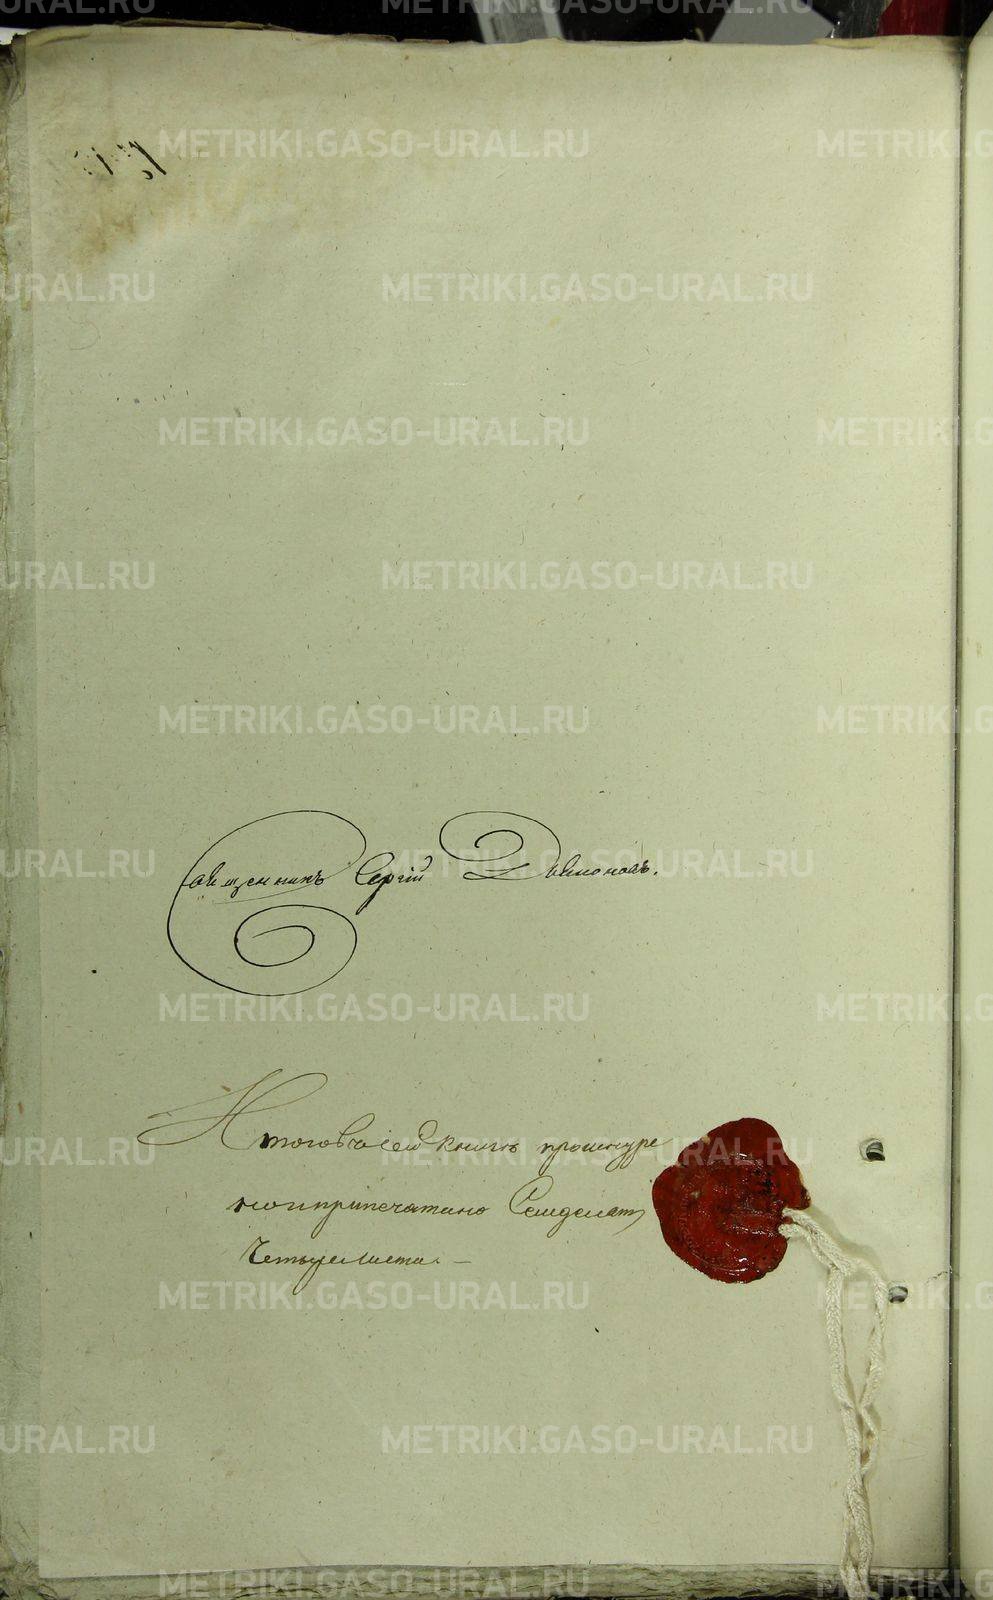 METRIKI.GASO-URAL.RU
Священникъ Сергій
Итого в сей книгѣ прошнуре
но и припечатано Семдесят
Четыре листа. —